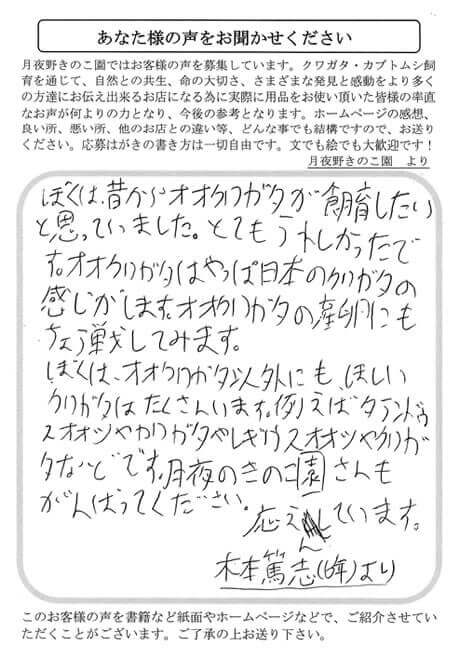 あなた様の声をお聞かせください
月夜野きのこ園ではお客様の声を募集しています。クワガタ・カブトムシ飼
育を通じて、自然との共生、命の大切さ、さまざまな発見と感動をより多く
の方達にお伝え出来るお店になる為に実際に用品をお使い頂いた皆様の率直
なお声が何よりの力となり、今後の参考となります。ホームページの感想、
良い所、悪い所、他のお店との違い等、どんな事でも結構ですので、お送り
ください。応募はがきの書き方は一切自由です。文でも絵でも大歓迎です！
月夜野きのこ園　より
ぼくは、昔からオオクワガタが飼育したい
と思っていました。とてもうれしかったで
す。オオクワガタはやっぱ日本のクワガタの
感じがします。オオクワガタの産卵にも
ちょう戦してみます。
ぼくは、オオクワガタ以外にも、ほしい
クワガタはたくさんいます。例えばタランドゥ
スオオツヤクワガタやレギウスオオツヤクワガ
タなどです。月夜のきのこ園さんも
がんばってください。
応えんしています。
木本篤志(6年)より
このお客様の声を書籍など紙面やホームページなどで、ご紹介させてい
ただくことがございます。ご了承の上お送り下さい。